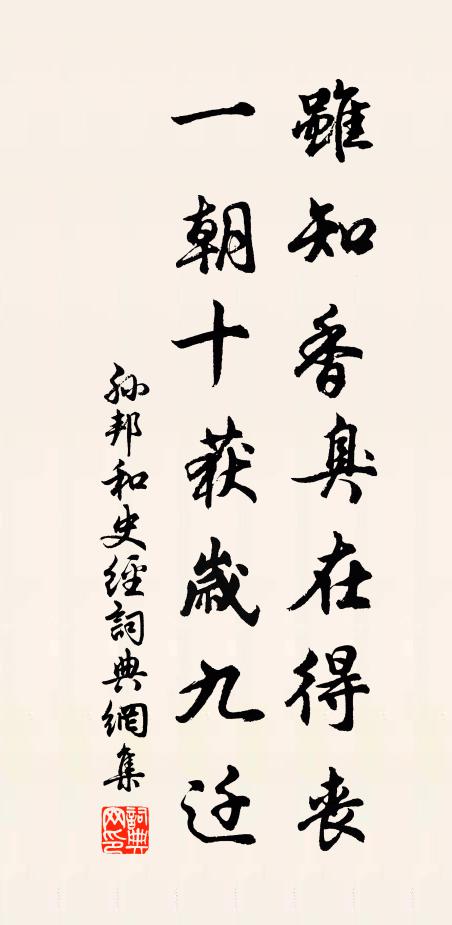 雖知香臭在得喪
一朝十获歲九迁
孙邦和史經詞典網集
詞典网印